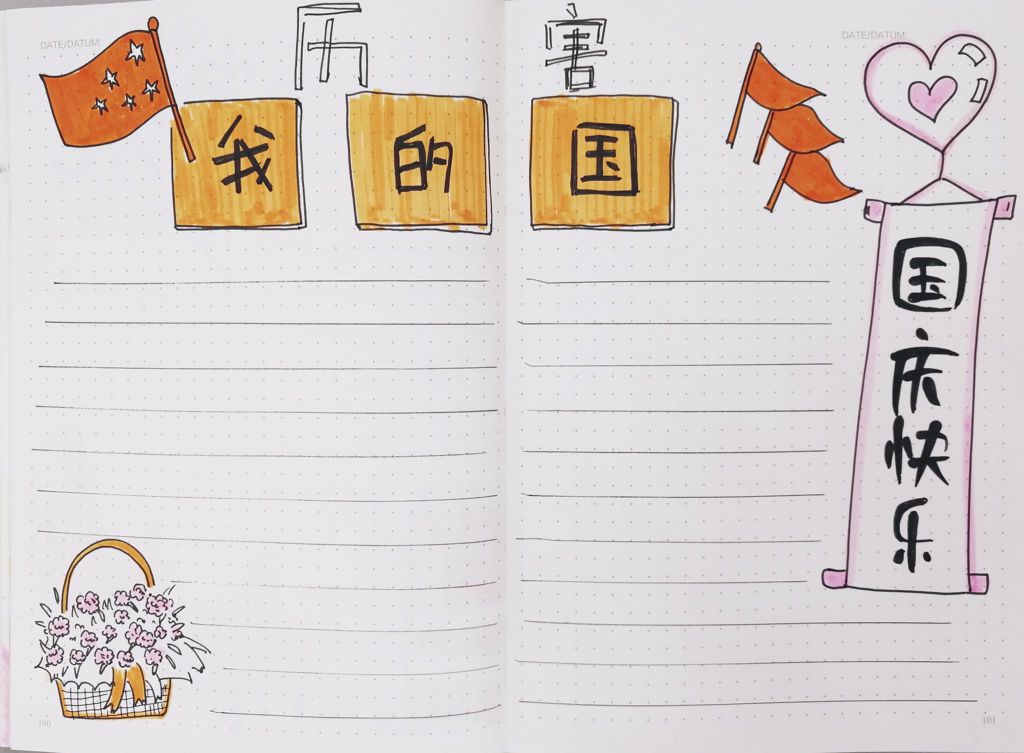 DATE/DATUM:
历害
DATE/DATUM:
我的国
国庆快乐
100
101